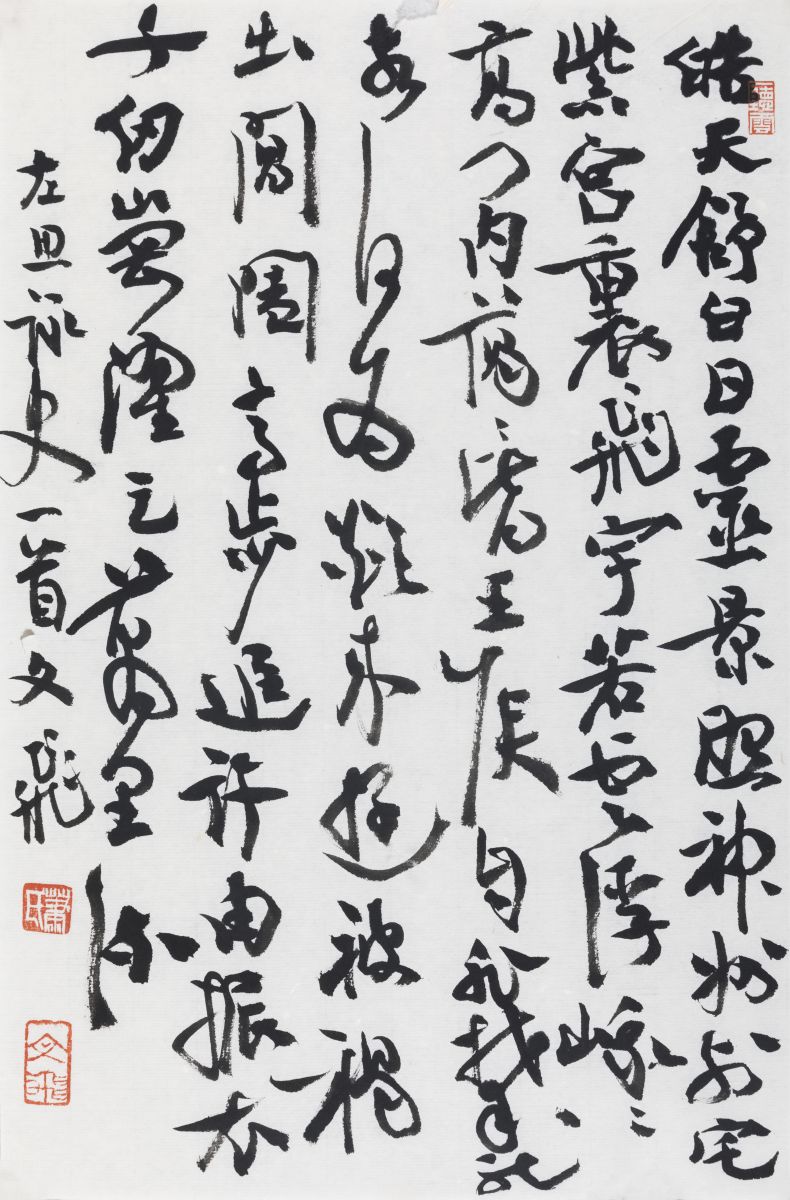 皓天舒白日靈景照神州列宅
紫宮裏飛宇若雲浮峨〻
高门内藹〻皆王侯自非攀龍
客何為欻来遊被褐
出閶闔高步追許由振衣
千仞崗濯足萬里流
左思詠史一首文飛
蕭氏
文飛